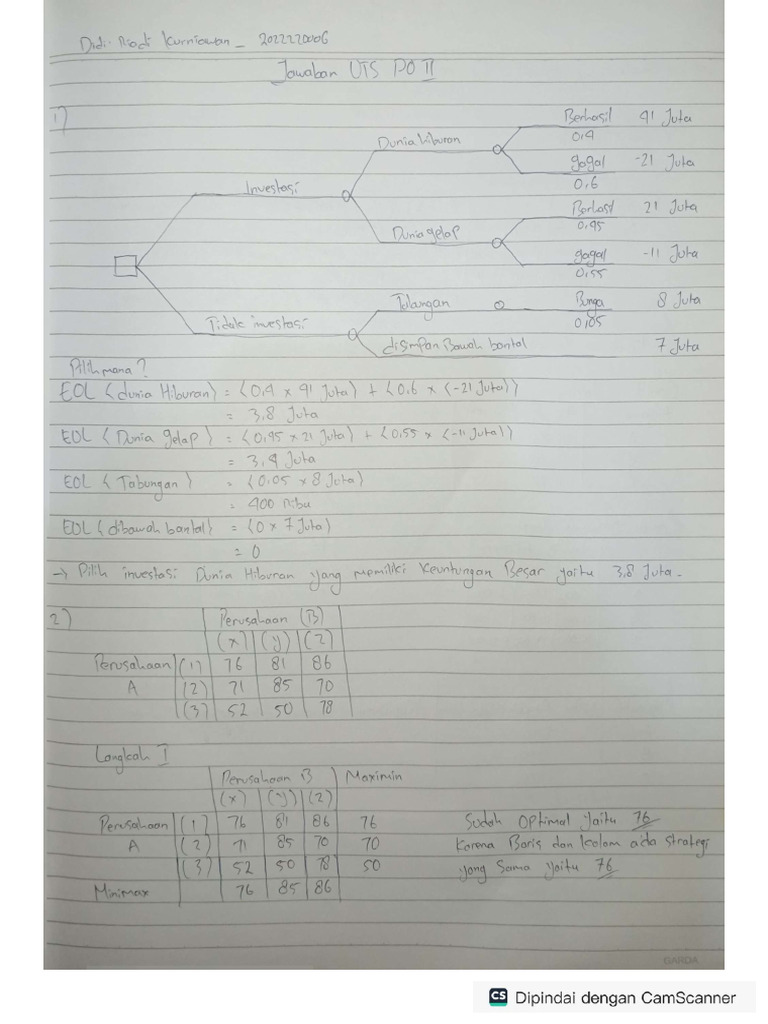 Didi Riadi Kurniawan _ 2022220006
Jawaban UTS PO II
1)
Berhasil 41 Juta
Dunia hiburan
0,4
gagal -21 Juta
Investasi
0,6
Berhasil 21 Juta
Dunia gelap
0,45
gagal -11 Juta
0,55
Tabungan Bunga 8 Juta
Tidak investasi
0,05
disimpan Bawah bantal 7 Juta
Pilih mana?
EOL (dunia Hiburan) = (0,4 x 41 Juta) + (0,6 x (-21 Juta))
= 3,8 Juta
EOL (Dunia gelap) = (0,45 x 21 Juta) + (0,55 x (-11 Juta))
= 3,4 Juta
EOL (Tabungan) = (0.05 x 8 Juta)
= 400 Ribu
EOL (dibawah bantal) = (0 x 7 Juta)
= 0
→ Pilih investasi Dunia Hiburan yang memiliki Keuntungan Besar yaitu 3,8 Juta.
2)
Perusahaan (B)
(x) (y) (z)
Perusahaan (1) 76 81 86
A (2) 71 85 70
(3) 52 50 78
Langkah I
Perusahaan B Maximin
(x) (y) (z)
Perusahaan (1) 76 81 86 76 Sudah optimal yaitu 76
A (2) 71 85 70 70 Karena Baris dan kolom ada strategi
(3) 52 50 78 50 yang Sama yaitu 76
Minimax 76 85 86
GARDA
CS Dipindai dengan CamScanner